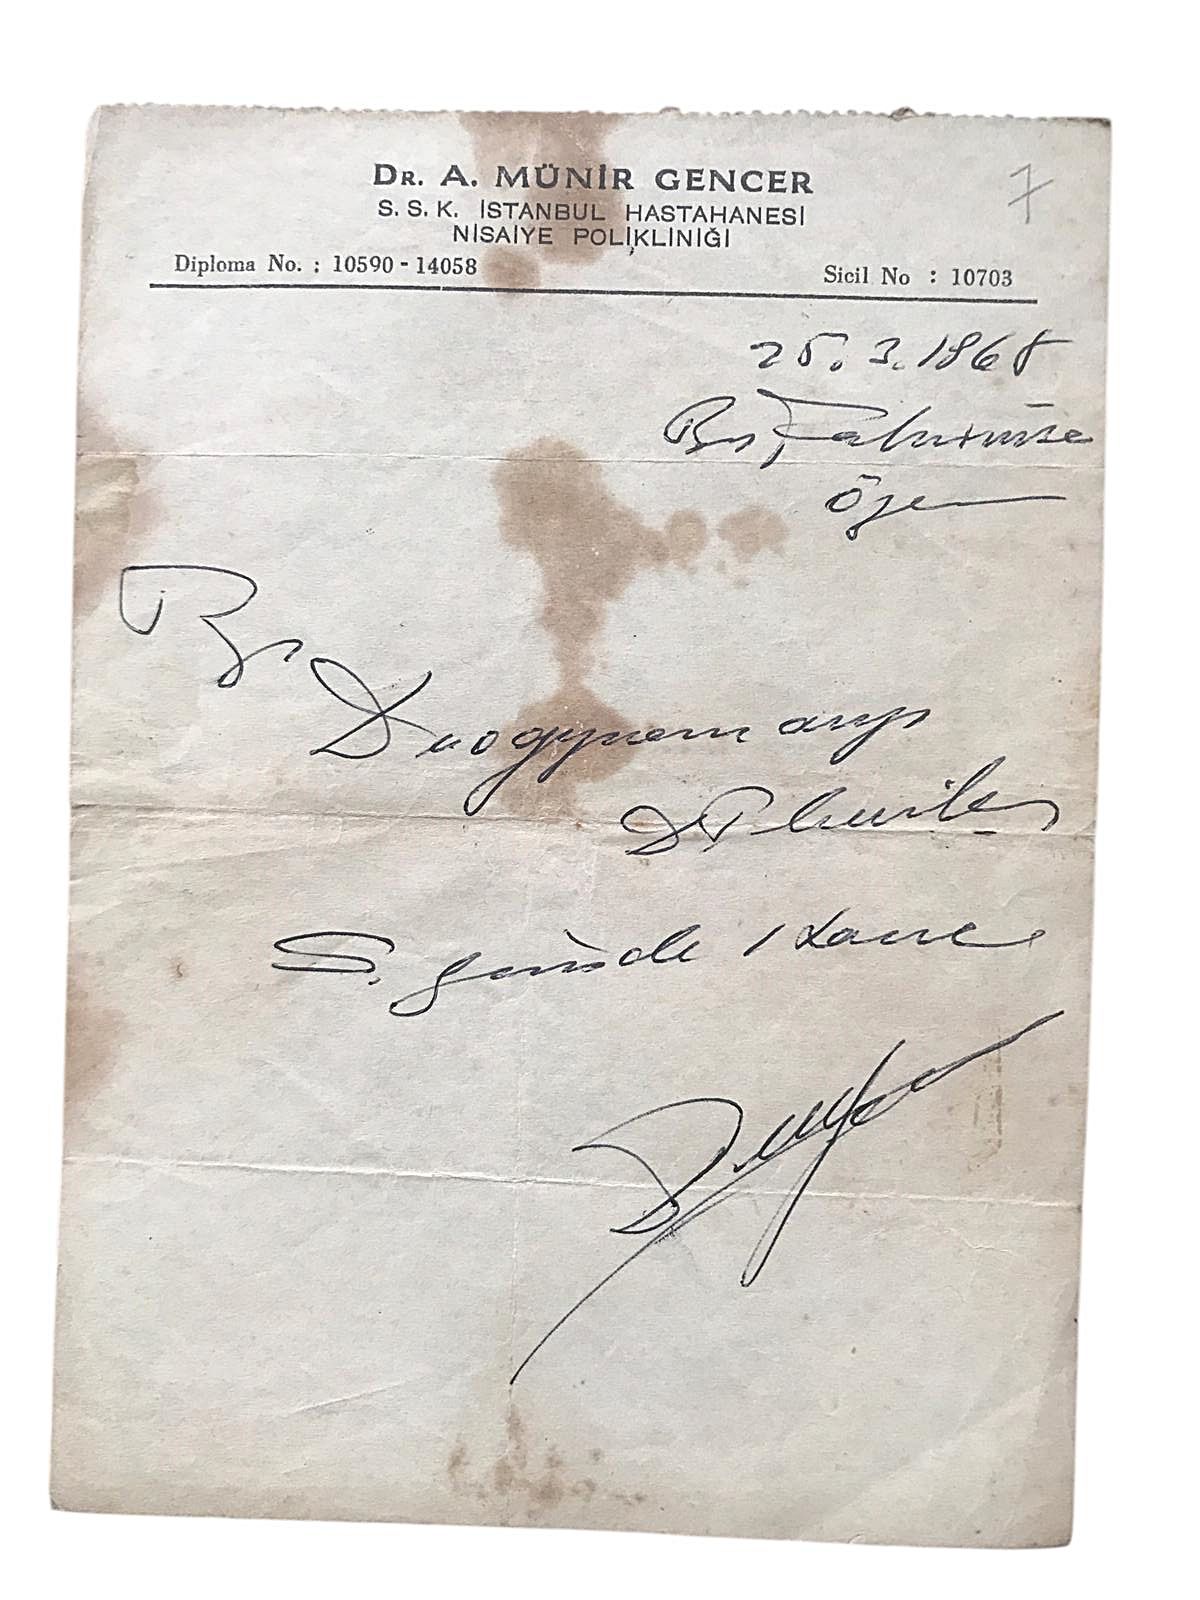 DR. A. MÜNİR GENCER
7
S. S. K. İSTANBUL HASTAHANESİ
NİSAİYE POLİKLİNİĞİ
Diploma No. : 10590 - 14058
Sicil No : 10703
25. 3. 1968
Bn Fahrünisa
Özen
Duogynon amp
S. günde 1 tane